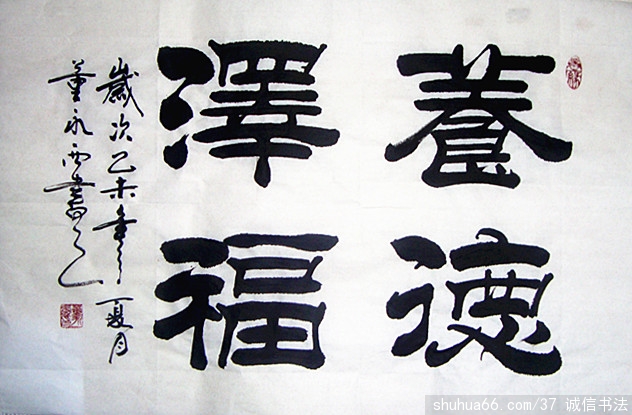 養德
澤福
歲次乙未年之夏月
董永西書之
shuhua66.com/37 诚信书法